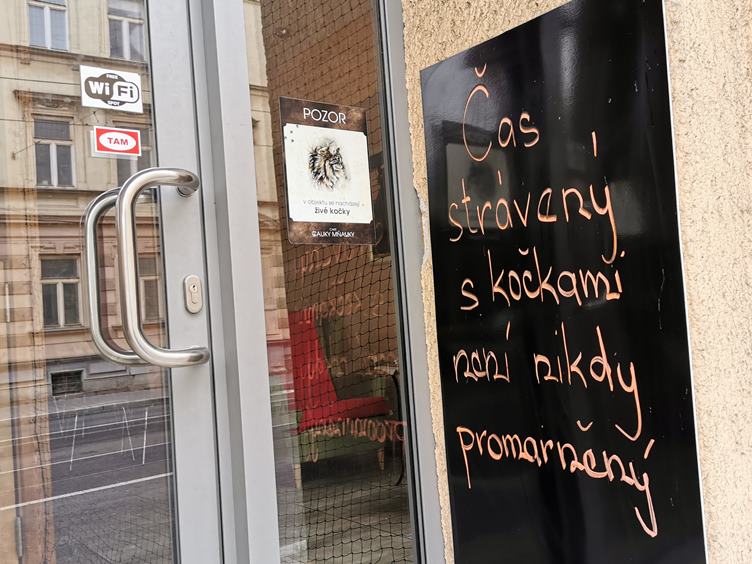 FREE
Wi Fi
SPOT
TAM
POZOR
v objektu se nacházejí
živé kočky
CAFE
Čas
strávený
s kočkami
není nikdy
promarněný